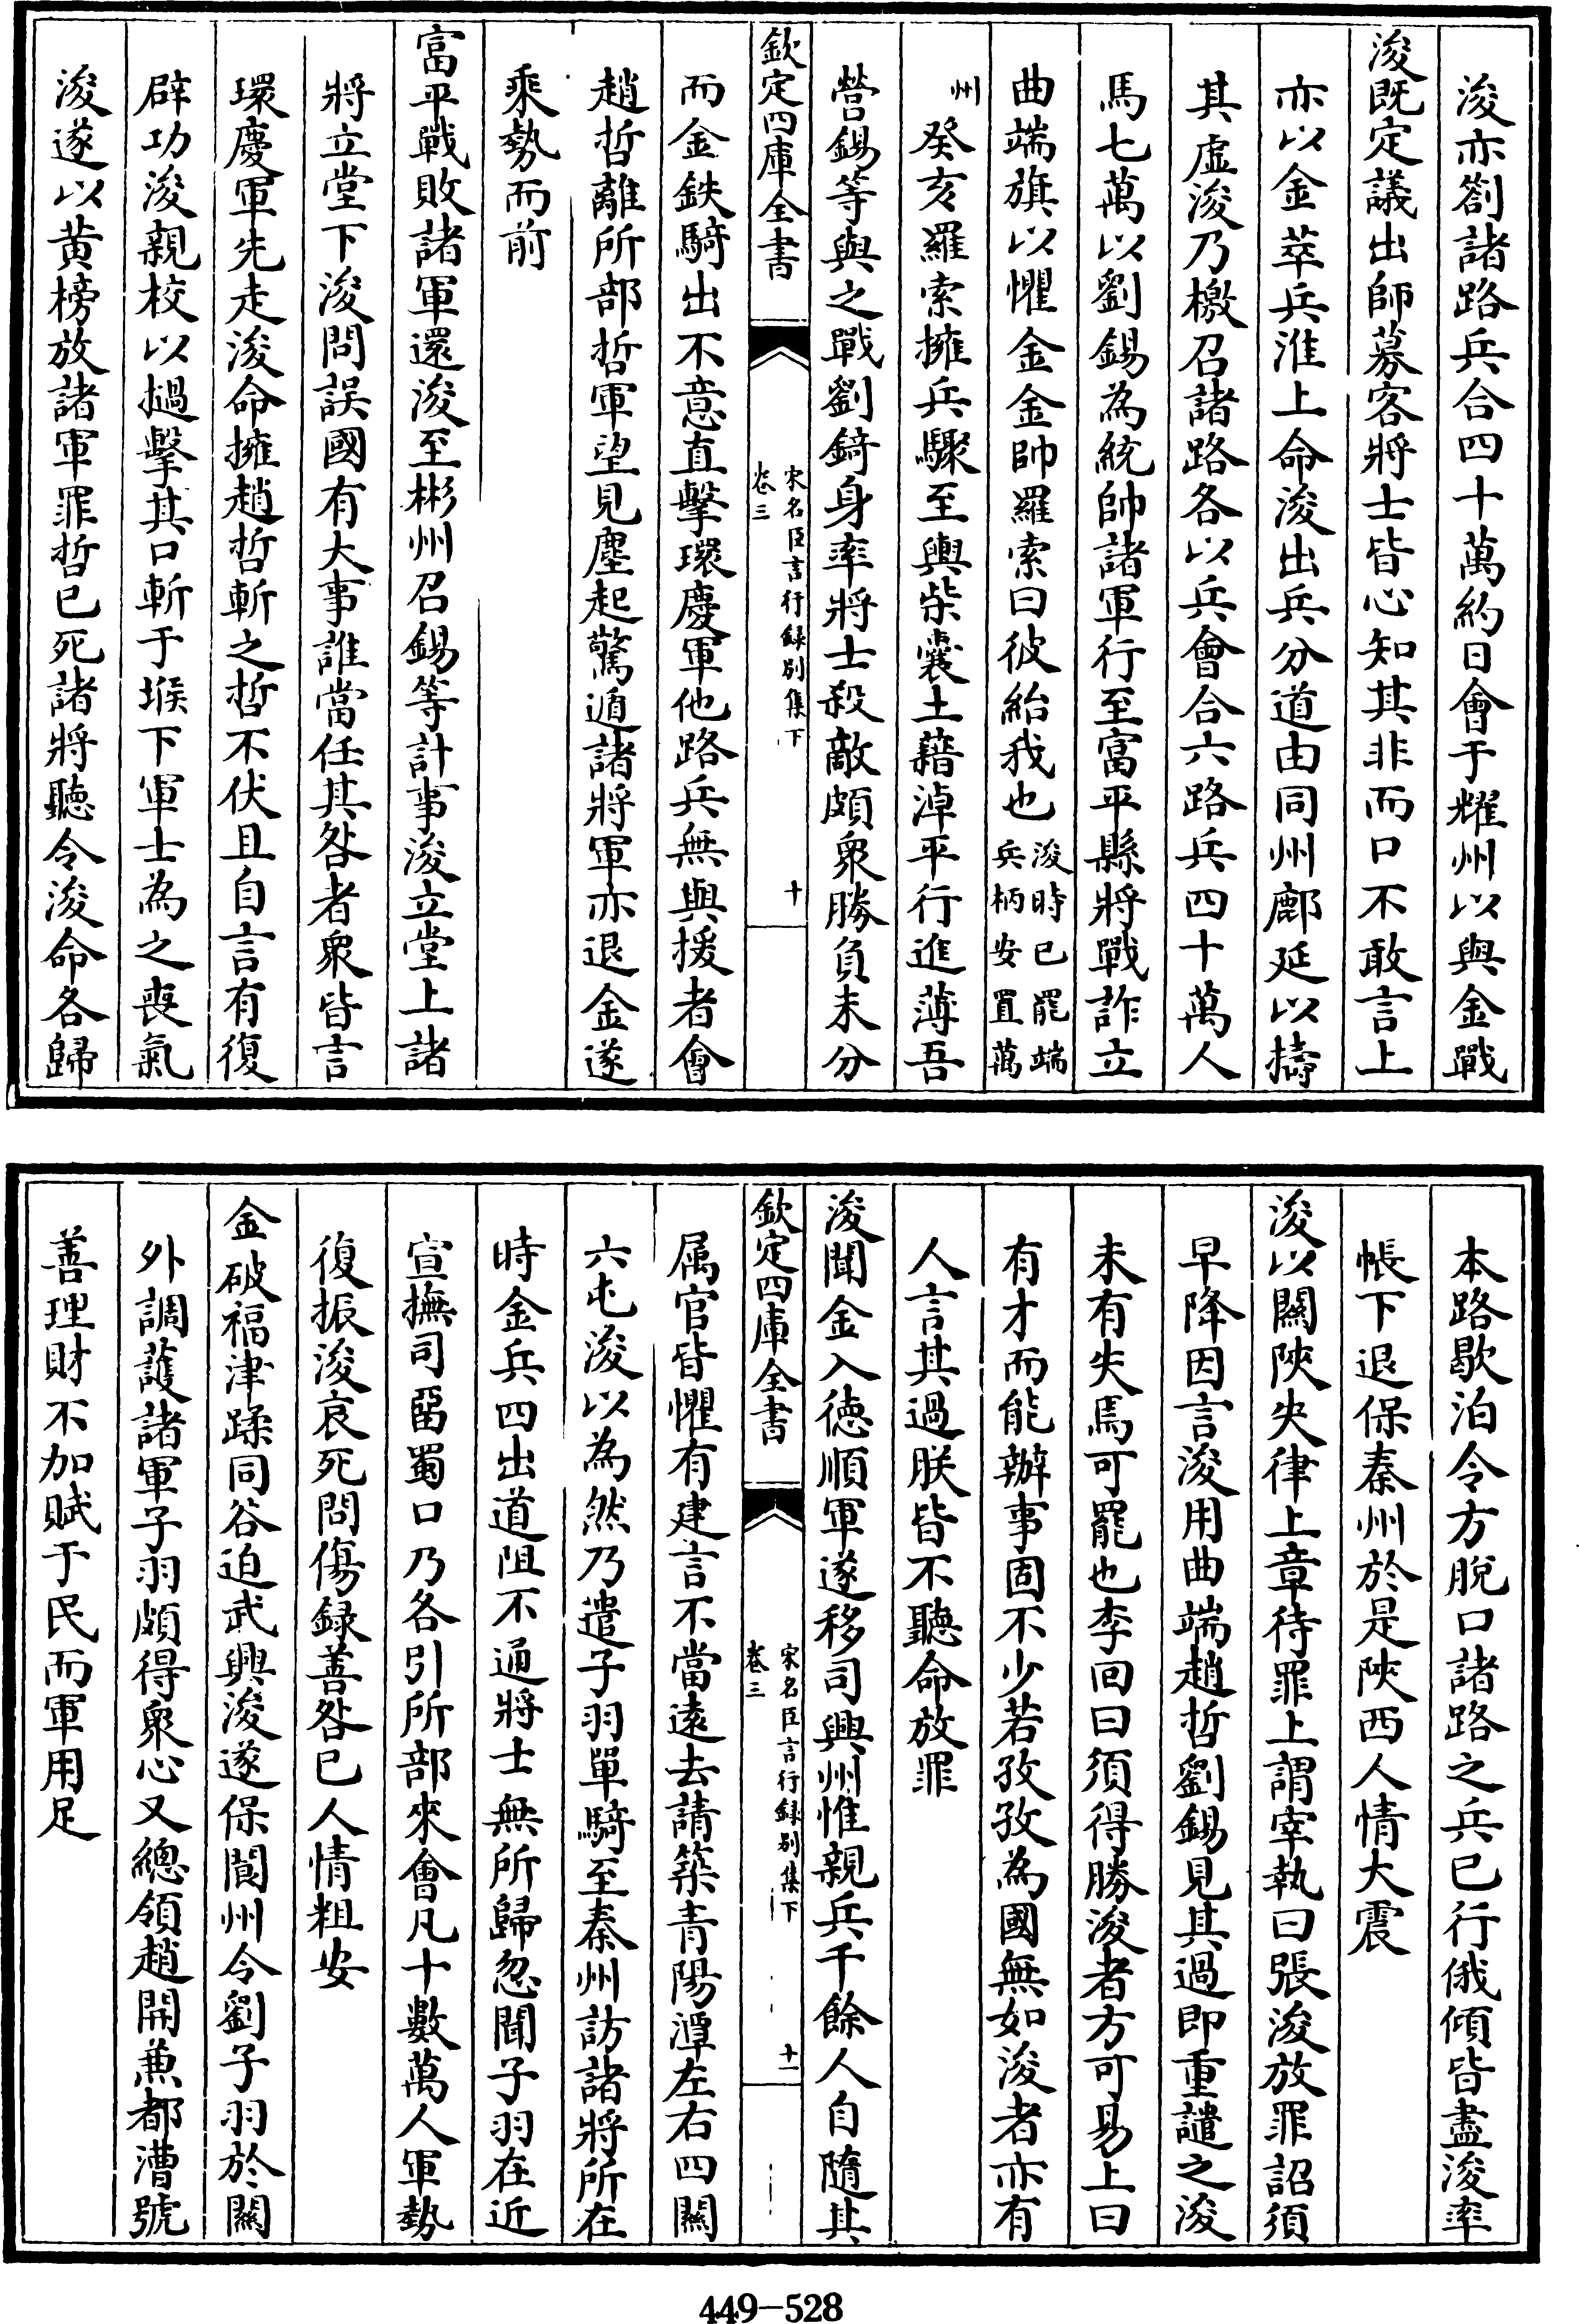 浚亦劄諸路兵合四十萬約日會于耀州以與金戰
浚既定議出師幕客將士皆心知其非而口不敢言上
亦以金萃兵淮上命浚出兵分道由同州鄜延以擣
其虛浚乃檄召諸路各以兵會合六路兵四十萬人
馬七萬以劉錫為統帥諸軍行至富平縣將戰詐立
曲端旗以懼金金帥羅索曰彼紿我也浚時已罷端兵柄安置萬
州
癸亥羅索擁兵驟至輿柴囊土藉淖平行進薄吾
營錫等與之戰劉錡身率將士殺敵頗衆勝負未分
欽定四庫全書
宋名臣言行録别集下
卷三
十
而金鉄騎出不意直擊環慶軍他路兵無與援者會
趙哲離所部哲軍望見塵起驚遁諸將軍亦退金遂
乘勢而前
富平戰敗諸軍還浚至彬州召錫等計事浚立堂上諸
將立堂下浚問誤國有大事誰當任其咎者衆皆言
環慶軍先走浚命擁趙哲斬之哲不伏且自言有復
辟功浚親校以撾擊其口斬于堠下軍士為之喪氣
浚遂以黄榜放諸軍罪哲已死諸將聽令浚命各歸
本路歇泊令方脫口諸路之兵已行俄傾皆盡浚率
帳下退保秦州於是陜西人情大震
浚以關陜失律上章待罪上謂宰執曰張浚放罪詔須
早降因言浚用曲端趙哲劉錫見其過即重譴之浚
未有失焉可罷也李回曰須得勝浚者方可易上曰
有才而能辦事固不少若孜孜為國無如浚者亦有
人言其過朕皆不聽命放罪
浚聞金入德順軍遂移司興州惟親兵千餘人自隨其
欽定四庫全書
宋名臣言行録别集下
卷三
十一
属官皆懼有建言不當遠去請築青陽潭左右四關
六屯浚以為然乃遣子羽單騎至秦州訪諸將所在
時金兵四出道阻不通將士無所歸忽聞子羽在近
宣撫司畱蜀口乃各引所部來會凡十數萬人軍勢
復振浚哀死問傷録善咎已人情粗安
金破福津蹂同谷迫武興浚遂保閬州令劉子羽於關
外調護諸軍子羽頗得衆心又總領趙開兼都漕號
善理財不加賦于民而軍用足
449-528